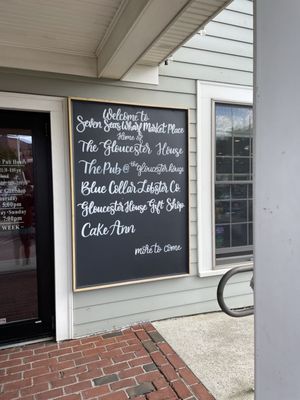 Welcome to
Seven Seas Wharf Market Place
Home of
The Gloucester House
The Pub @ the gloucester house
Blue Collar Lobster Co
Gloucester House Gift Shop
Cake Ann
more to come